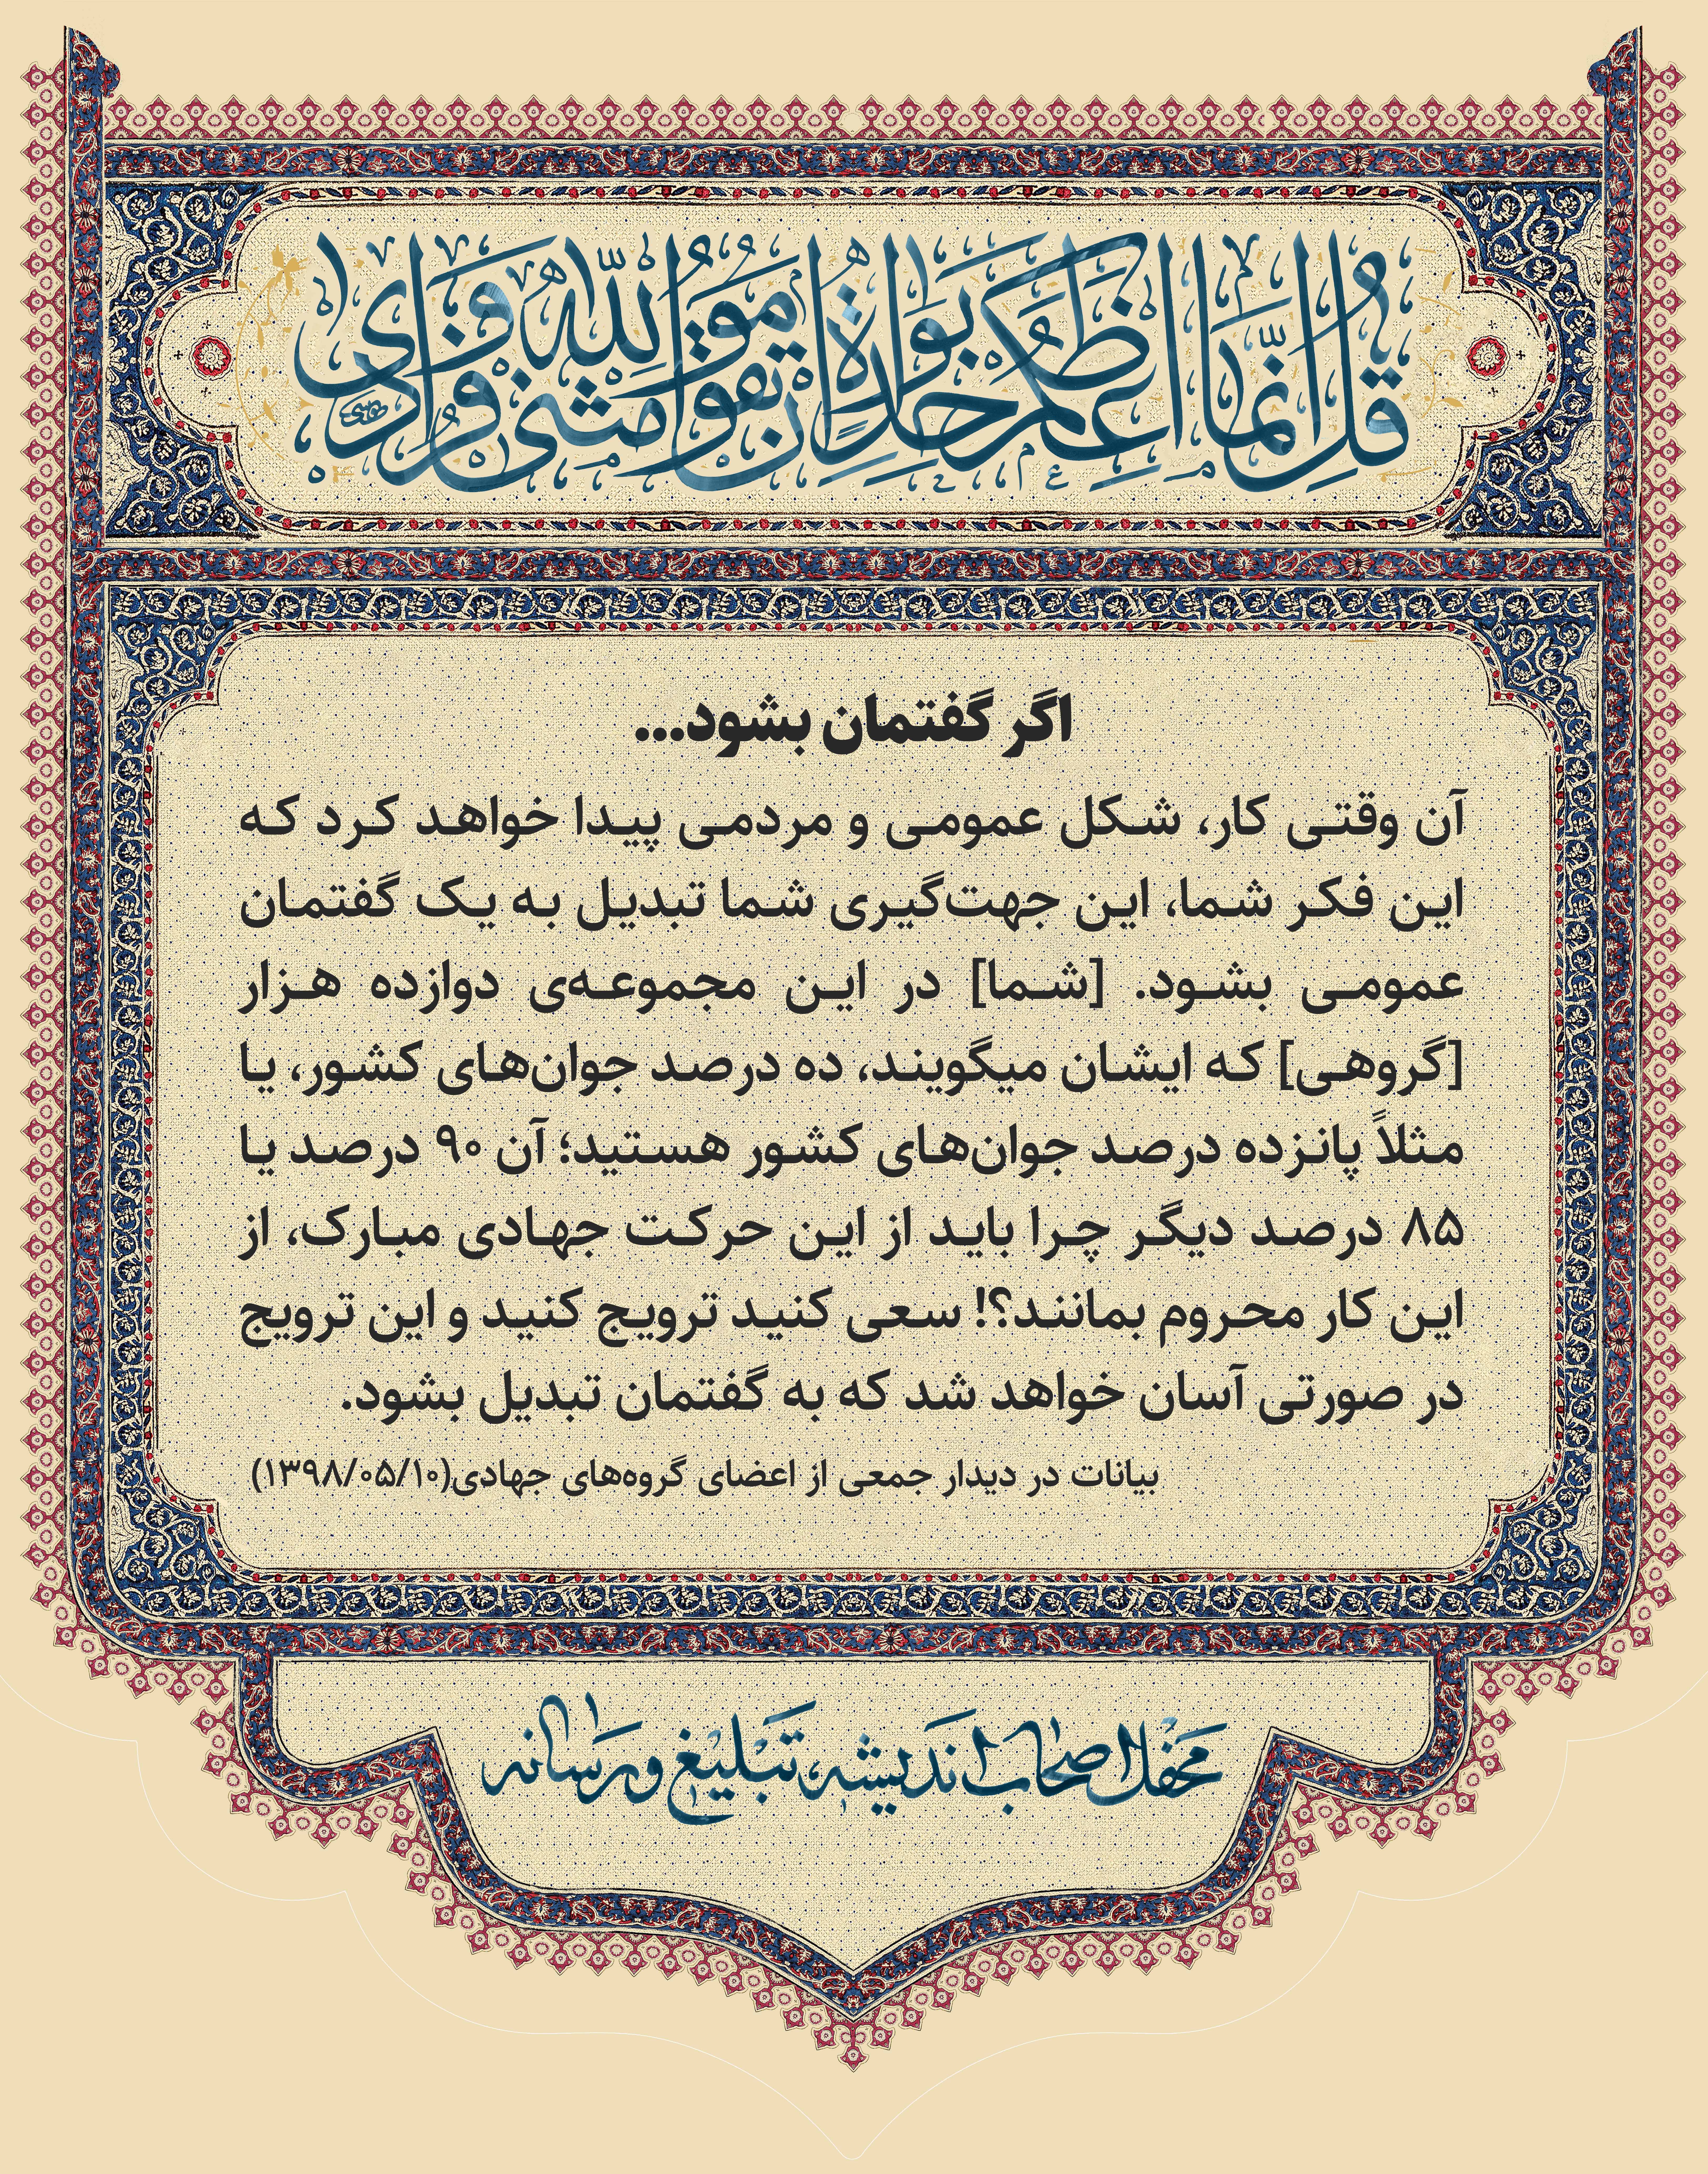 قُل اِنَّما اَعِظُکُم بِواحِدَةٍ اَن تَقوموا لِلّهِ مَثنیٰ وَ فُرادیٰ
اگر گفتمان بشود...
آن وقتی کار، شکل عمومی و مردمی پیدا خواهد کرد که
این فکر شما، این جهت‌گیری شما تبدیل به یک گفتمان
عمومی بشود. [شما] در این مجموعه‌ی دوازده هزار
[گروهی] که ایشان میگویند، ده درصد جوان‌های کشور، یا
مثلاً پانزده درصد جوان‌های کشور هستید؛ آن ۹۰ درصد یا
۸۵ درصد دیگر چرا باید از این حرکت جهادی مبارک، از
این کار محروم بمانند؟! سعی کنید ترویج کنید و این ترویج
در صورتی آسان خواهد شد که به گفتمان تبدیل بشود.
بیانات در دیدار جمعی از اعضای گروه‌های جهادی(۱۳۹۸/۰۵/۱۰)
محفل اصحاب اندیشه، تبلیغ و رسانه